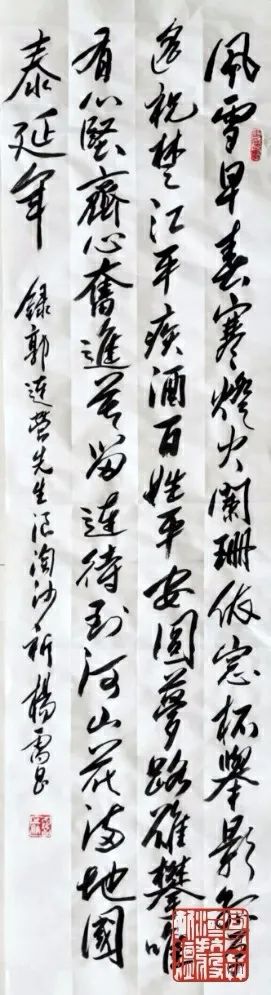 風雪早春寒燈火闌珊倚窓杯舉影
遙祝楚江平疫酒百姓平安圓夢路雖攀唯
有心堅齊心奮進莫留連待到河山花滿地國
泰延年
錄郭連營先生浪淘沙祈 楊